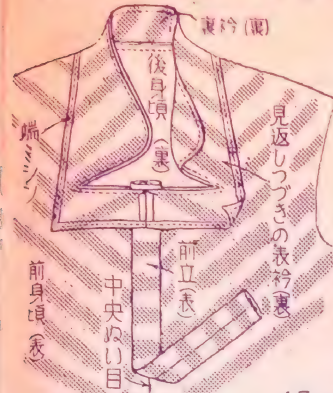 裏衿(裏)
後身頃(裏)
端ミシン
見返しつづきの表衿(裏)
前立(表)
前身頃(表)
中央ぬい目